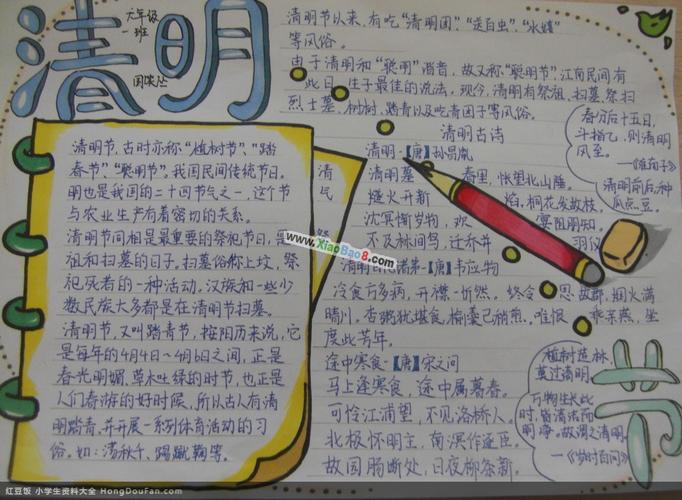 清明
六年级
一班
清明节,古时亦称“植树节”、“踏
春节”、“聪明节”,我国民间传统节日。
明也是我国的二十四节气之一,这个节
与农业生产有着密切的关系。
清明节同相是最重要的祭祀节日,是
祖和扫墓的日子。扫墓俗称上坟,祭
祀死者的一种活动,汉族和一些少
数民族大多都是在清明节扫墓。
清明节,又叫踏青节,按阳历来说,它
是每年的4月4日~4月6日之间,正是
春光明媚,草木吐绿的时节,也正是
人们春游的好时候,所以古人有清
明踏青,并开展一系列体育活动的习
俗。如:荡秋千、踢蹴鞠等。
清
民
祭
清明节以来,有吃“清明团”、“送百虫”、
等风俗。
由于清明和“聪明”谐音,故又称“聪明节”,江南民间有
此日生子最佳的说法,现今,清明有祭祖、扫墓、祭扫
烈士墓、树树、踏青以及吃青团子等风俗。
清明古诗
清明-【唐】孙昌胤
清明暮春里,怅望北山陲。
燧火开新焰,桐花发故枝。
沈冥惭岁物,欢宴阻朋知。
不及林间鸟,迁乔并羽仪
【唐】韦应物
冷食方多病,开襟一忻然。终令思故郡,烟火满
晴川。杏粥犹堪食,榆羹已稍煎。唯恨乖亲燕,坐
度此芳年。
途中寒食-【唐】宋之问
马上逢寒食,途中属暮春。
可怜江浦望,不见洛桥人。
北极怀明主,南溟作逐臣。
故园肠断处,日夜柳条新。
春分后十五日,
斗指乙,则清明
风至。
清明前后,种
瓜点豆。
植树造林,
莫过清明。
万物生长此
时,皆清洁而
明净。故谓之清明。
节
www.XiaoBao8.com
红豆饭 小学生资料大全 HongDouFan.com